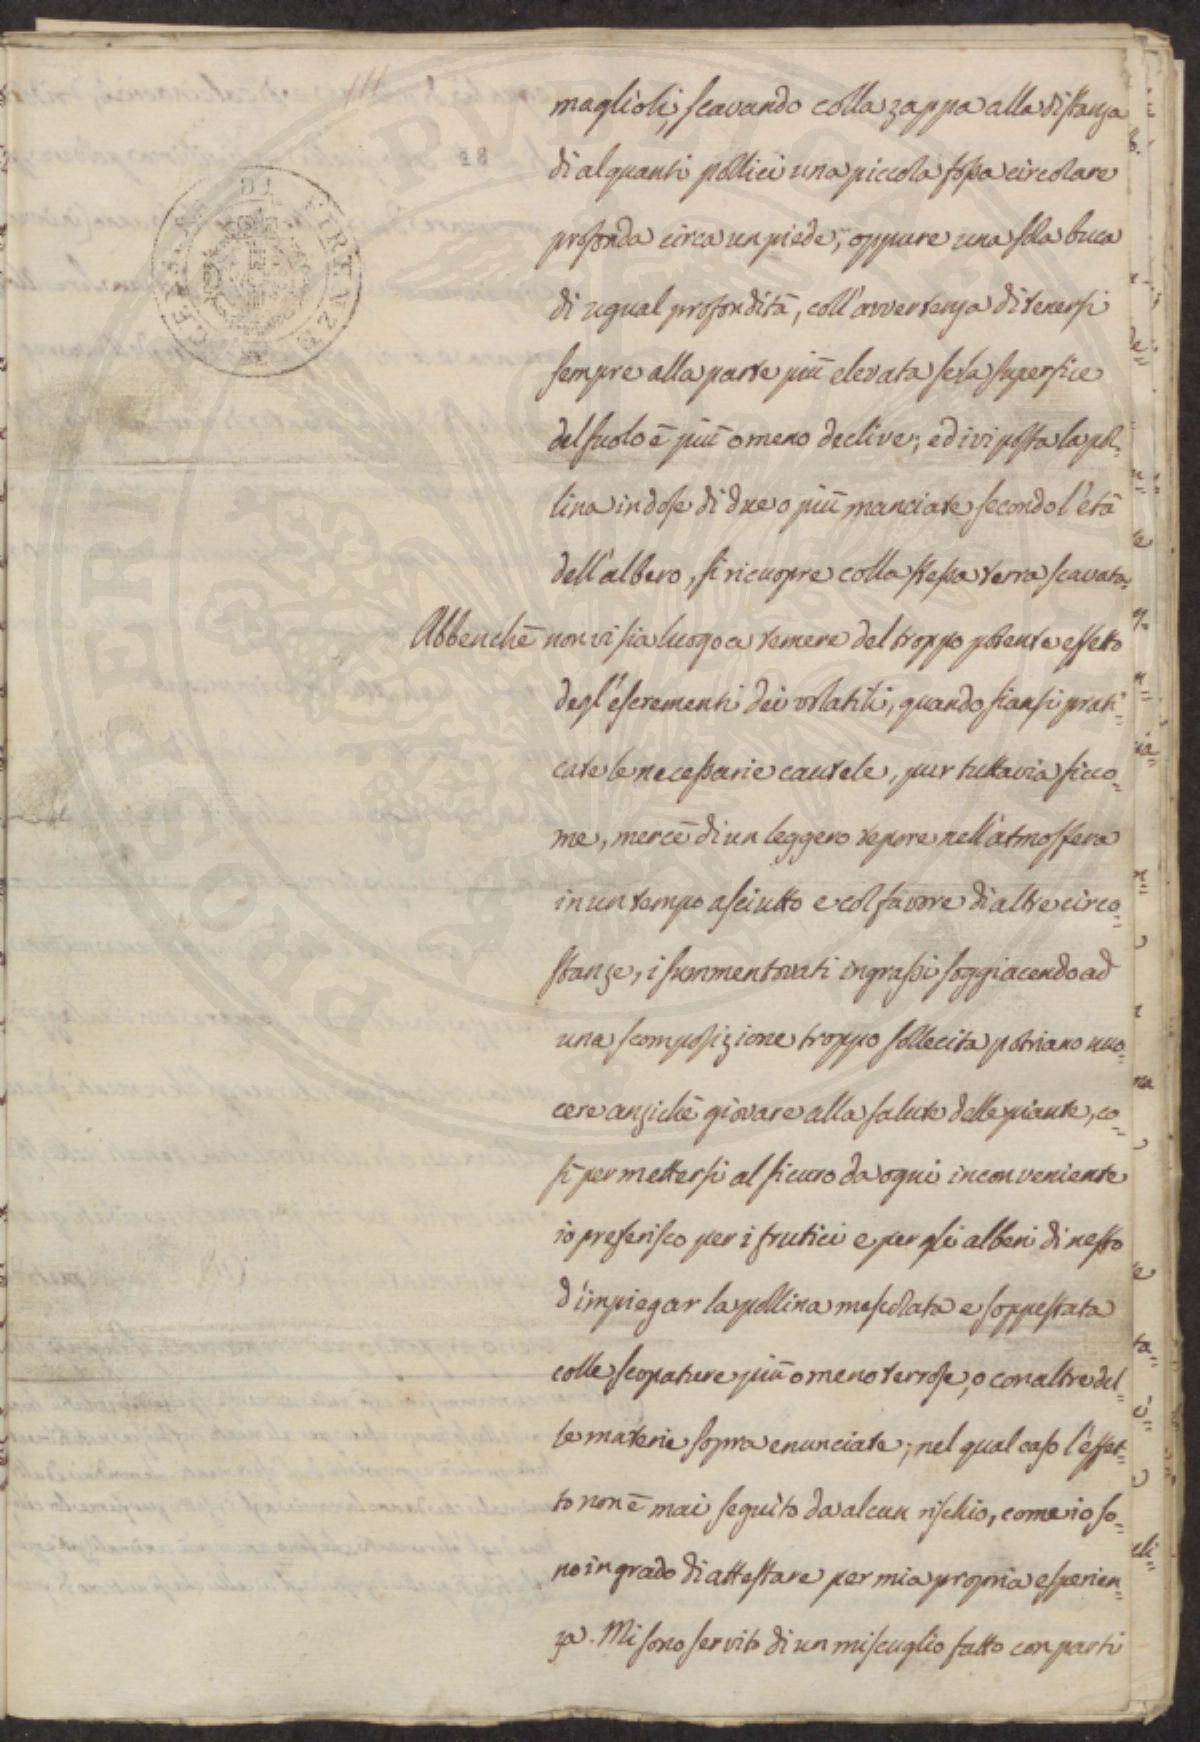 maglioli, scavando colla zappa alla distanza
di alquanti pollici una piccola fossa circolare
profonda circa un piede, oppure una sola buca
di ugual profondità, coll'avvertenza di tenersi
sempre alla parte più elevata se la superfice
del suolo è più o meno declive; ed ivi posta la pol=
lina in dose di due o più manciate, secondo l'età
dell'albero, si ricuopre colla stessa terra scavata.
Abbenchè non vi sia luogo a temere del troppo potente effetto
degl'escrementi dei volatili, quando siansi prati=
cate le necessarie cautele, pur tuttavia sicco=
me, mercè di un leggero tepore nell'atmosfera
in un tempo asciutto e col favore di altre circo=
stanze, i summentovati ingrassi soggiacendo ad
una scomposizione troppo sollecita potriano nuo=
cere anzichè giovare alla salute delle piante, co=
sì per mettersi al sicuro da ogni inconveniente
io preferisco per i frutici e per gli alberi di nesto
d'impiegar la pollina mescolata e soppestata
colle scopature più o meno terrose, o con altre del=
le materie sopra enunciate; nel qual caso l'effet=
to non è mai seguìto da alcun rischio, come io so=
no in grado di attestare per mia propria esperien=
za. Mi sono servito di un miscuglio fatto con parti